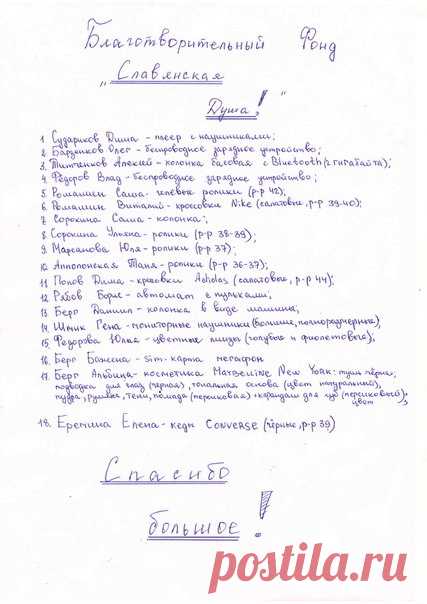 Благотворительный Фонд
„Славянская
Душа!"
1. Судариков Дима - плеер с наушниками;
2. Барзенков Олег - беспроводное зарядное устройство;
3. Титченков Алексей - колонка басовая с Bluetooth (2 гигабайта);
4. Фёдоров Влад - беспроводное зарядное устройство;
5. Ромашин Саша - гелевые ролики (р-р 42);
6. Ромашин Виталий - кроссовки Nike (салатовые, р-р 39-40);
7. Сорокина Саша - колонка;
8. Сорокина Ульяна - ролики (р-р 38-39);
9. Марсанова Юля - ролики (р-р 37);
10. Апполонская Таня - ролики (р-р 36-37);
11. Попов Дима - кроссовки Adidas (салатовые, р-р 44);
12. Рябов Борис - автомат с пульками;
13. Берг Даниил - колонка в виде машины;
14. Шпик Гена - мониторные наушники (большие, полноразмерные);
15. Федорова Юлия - цветные линзы (голубые и фиолетовые);
16. Берг Божена - sim-карта мегафон
17. Берг Альбина - косметика Maybelline New York: тушь чёрная,
подводка для глаз (чёрная), тональная основа (цвет натуральный),
пудра, румяна, тени, помада (персиковая) + карандаш для губ (персиковый цвет);
18. Еремина Елена - кеды Converse (чёрные, р-р 39)
Спасибо
большое!
postila.ru